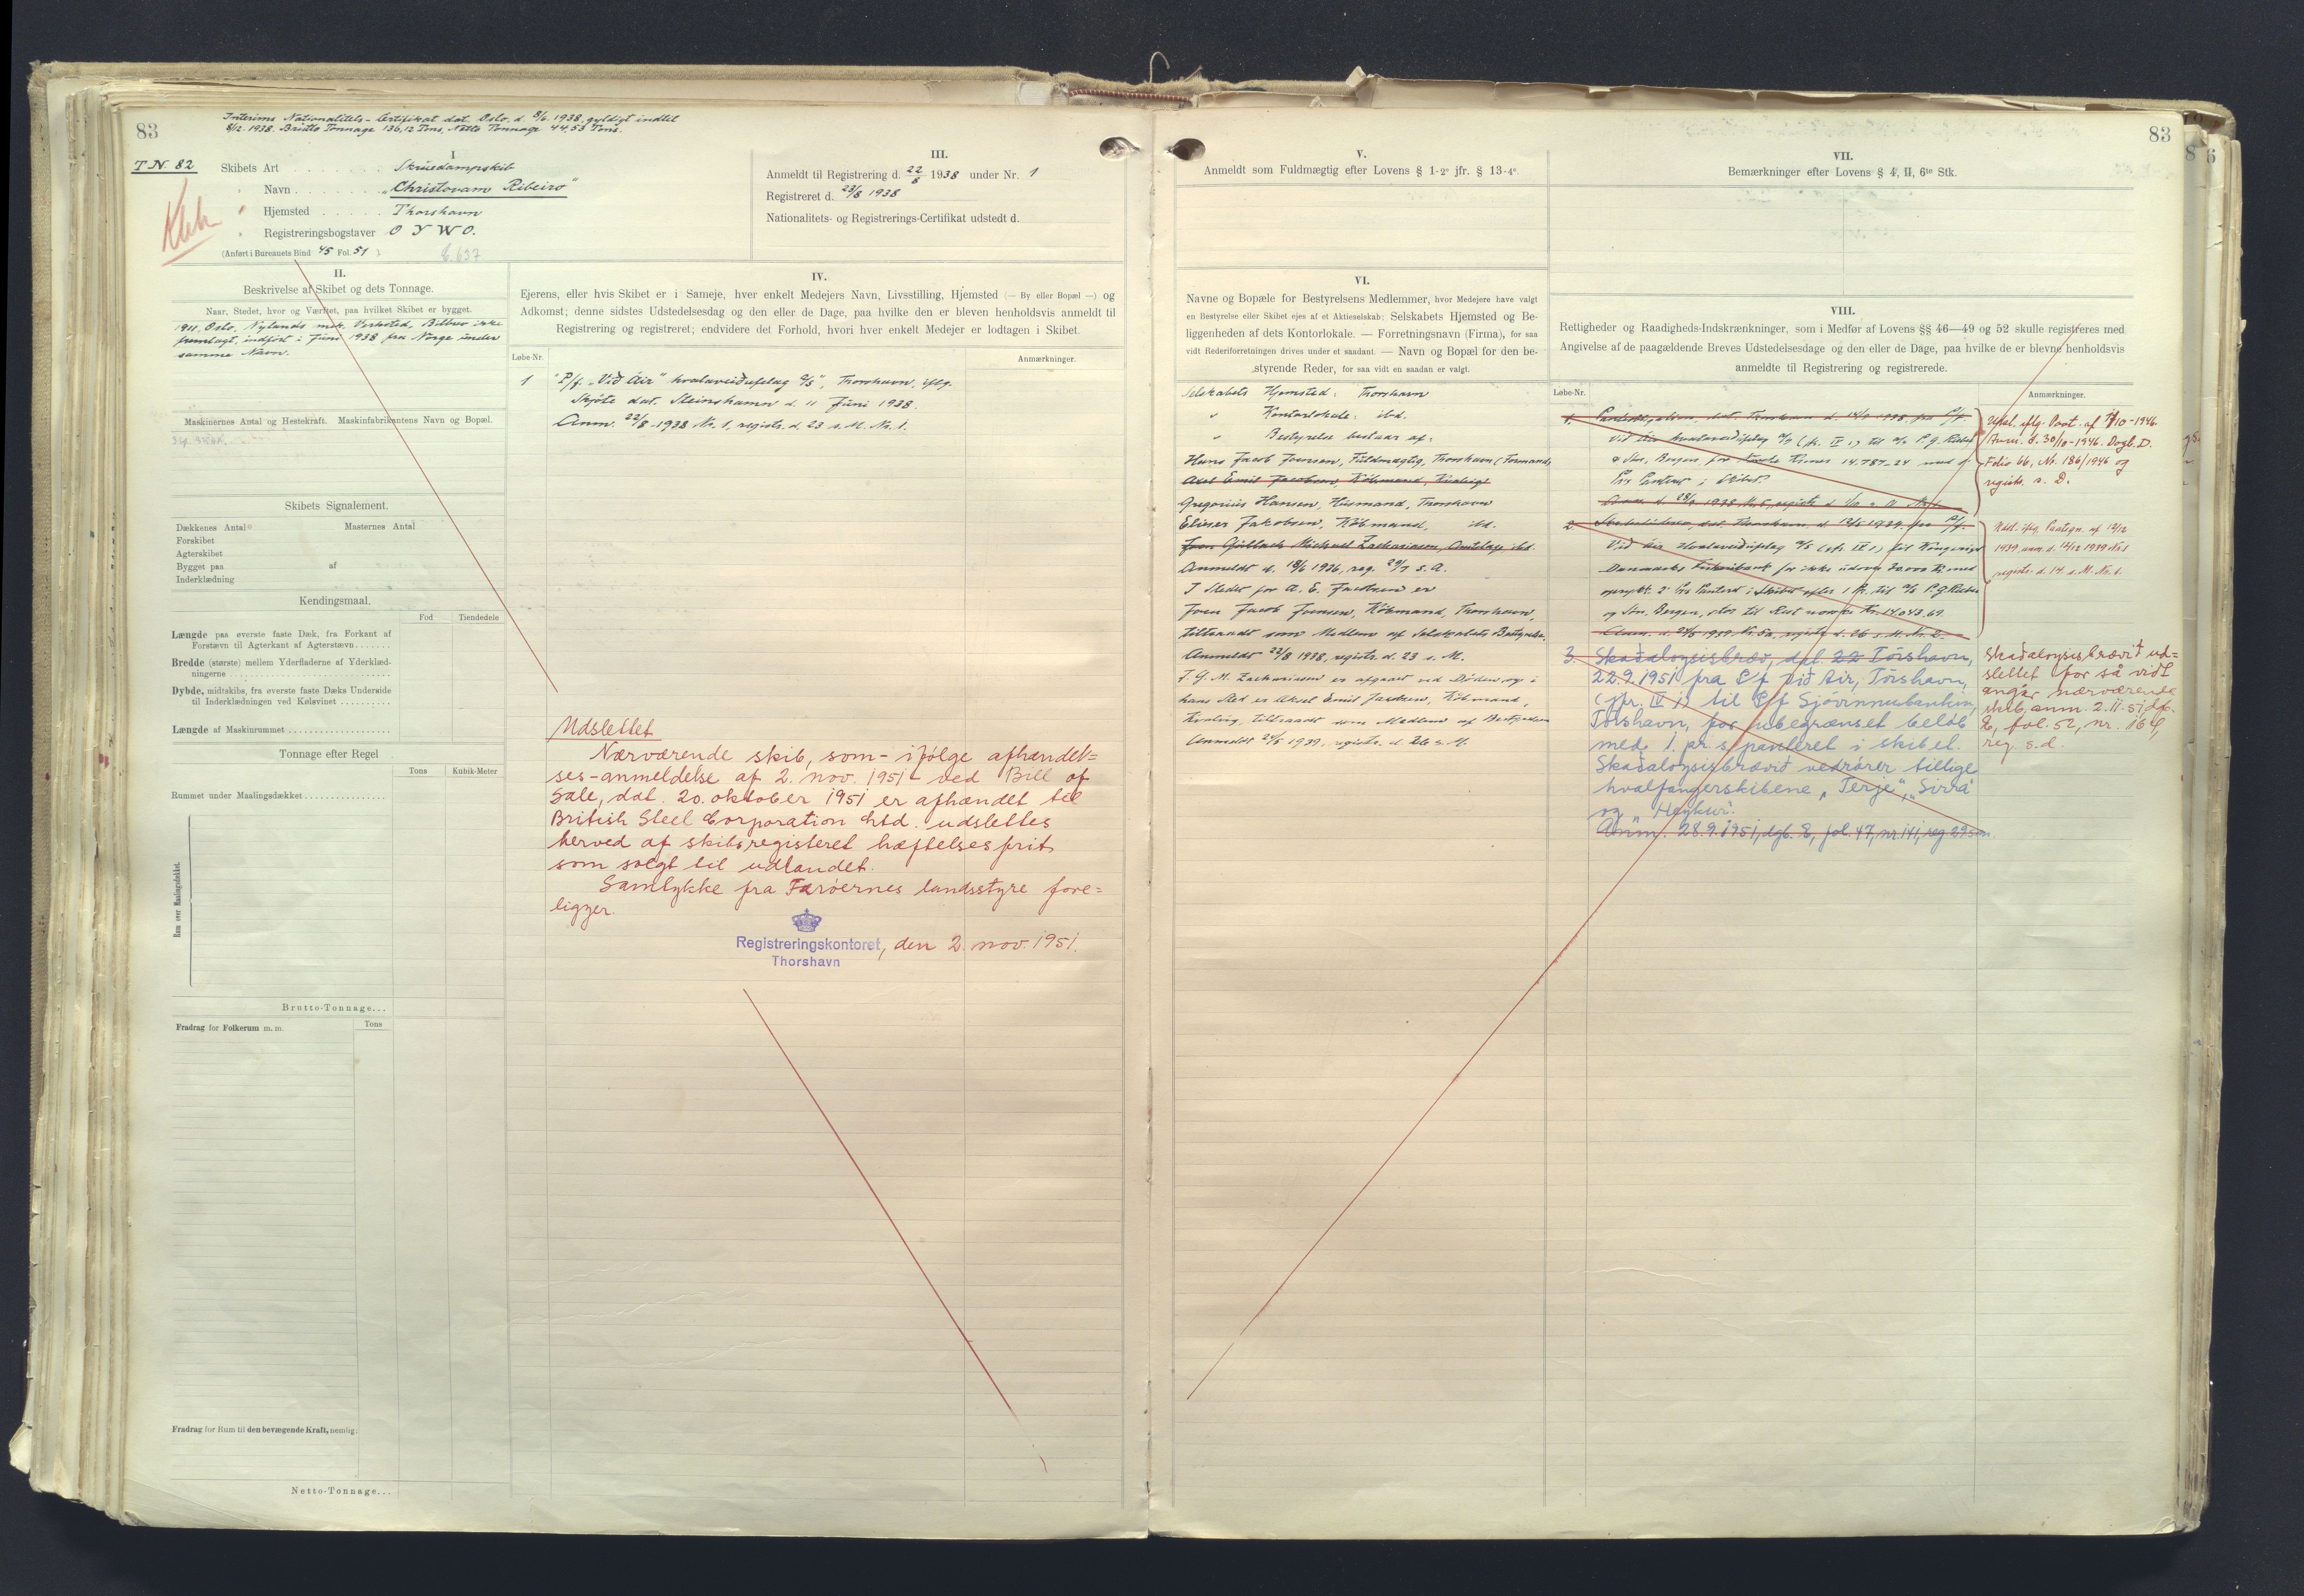 83
Interims Nationalitets-Certifikat dat. Oslo. d. 8/6. 1938. gyldigt indtil
8/12. 1938. Brutto Tonnage 136,12 Tons, Netto Tonnage 44,53 Tons.
T.N. 82
I
Skibets Art Skruedampskib
Navn „Christovam Ribeiro“
Hjemsted Thorshavn
Registreringsbogstaver O Y W O.
(Anført i Bureauets Bind 45 Fol. 51 )
III.
Anmeldt til Registrering d. 22/8 1938 under Nr. 1
Registreret d. 23/8 1938
Nationalitets- og Registrerings-Certifikat udstedt d.
II.
Beskrivelse af Skibet og dets Tonnage.
Naar, Stedet, hvor og Værftet, paa hvilket Skibet er bygget.
1911, Oslo, Nylands mek. Verksted, Bilbrev ikke
fremlagt, indført i Juni 1938 fra Norge under
samme Navn.
Maskinernes Antal og Hestekraft. Maskinfabrikantens Navn og Bopæl.
Skibets Signalement.
Dækkenes Antal Masternes Antal
Forskibet
Agterskibet
Bygget paa af
Inderklædning
Kendingsmaal.
Fod Tiendedele
Længde paa øverste faste Dæk, fra Forkant af
Forstævn til Agterkant af Agterstævn
Bredde (største) mellem Yderfladerne af Yderklæd-
ningerne
Dybde, midtskibs, fra øverste faste Dæks Underside
til Inderklædningen ved Kølsvinet
Længde af Maskinrummet
Tonnage efter Regel
Tons Kubik-Meter
Rummet under Maalingsdækket
Rum over Maalingsdækket.
Brutto-Tonnage...
Fradrag for Folkerum m. m. Tons
Fradrag for Rum til den bevægende Kraft, nemlig:
Netto-Tonnage...
IV.
Ejerens, eller hvis Skibet er i Sameje, hver enkelt Medejers Navn, Livsstilling, Hjemsted (— By eller Bopæl —) og
Adkomst; denne sidstes Udstedelsesdag og den eller de Dage, paa hvilke den er bleven henholdsvis anmeldt til
Registrering og registreret; endvidere det Forhold, hvori hver enkelt Medejer er lodtagen i Skibet.
Løbe-Nr. Anmærkninger.
1 "P/f. „Við Áir“ hvalaveiðufelag A/S", Thorshavn, iflg.
Skjøte dat. Steinshamn d. 11 Juni 1938.
Anm. 22/8-1938 Nr. 1, registr. d. 23 s. M. Nr. 1.
Udslettet
Nærværende skib, som - ifølge afhændel=
ses-anmeldelse af 2. nov. 1951 - ved Bill of
Sale, dat. 20. oktober 1951 er afhændet til
British Steel Corporation Ltd. udslettes
herved af skibsregisteret hæftelsesfrit
som solgt til udlandet.
Samtykke fra Færøernes landsstyre fore=
ligger.
Registreringskontoret, den 2. nov. 1951.
Thorshavn
83
V.
Anmeldt som Fuldmægtig efter Lovens § 1-2° jfr. § 13-4°.
VI.
Navne og Bopæle for Bestyrelsens Medlemmer, hvor Medejere have valgt
en Bestyrelse eller Skibet ejes af et Aktieselskab; Selskabets Hjemsted og Be-
liggenheden af dets Kontorlokale. — Forretningsnavn (Firma), for saa
vidt Rederiforretningen drives under et saadant. — Navn og Bopæl for den be-
styrende Reder, for saa vidt en saadan er valgt.
Selskabets Hjemsted: Thorshavn
" Kontorlokale: ibd.
" Bestyrelse bestaar af:
Hans Jacob Joensen, Fuldmægtig, Thorshavn (Formand)
Axel Emil Jacobsen, Købmand, Kvalvig
Gregorius Hansen, Husmand, Thorshavn
Elieser Jakobsen, Købmand, ibd.
Michael Zachariasen, ibd.
Anmeldt d. 18/6 1936, reg. 29/7 s. A.
I Stedet for A. E. Jacobsen er
Joen Jacob Joensen, Købmand, Thorshavn,
tiltraadt som Medlem af Selskabets Bestyrelse.
Anmeldt 22/8 1938, registr. d. 23 s. M.
J. G. M. Zachariasen er afgaaet ved Døden, og i
hans Sted er Aksel Emil Jacobsen, Købmand,
Kvalvig, tiltraadt som Medlem af Bestyrelsen
Anmeldt 24/5 1939, registr. d. 26 s. M.
VII.
Bemærkninger efter Lovens § 4, II, 6te Stk.
VIII.
Rettigheder og Raadigheds-Indskrænkninger, som i Medfør af Lovens §§ 46—49 og 52 skulle registreres med
Angivelse af de paagældende Breves Udstedelsesdage og den eller de Dage, paa hvilke de er blevne henholdsvis
anmeldte til Registrering og registrerede.
Løbe-Nr. Anmærkninger.
1. dat. Thorshavn d. 1938 fra P/f.
Við Áir hvalaveiðufelag A/S (jfr. IV 1.) til A/S P. G. Rieber
& Søn, Bergen, for norske Kroner 14.787-24 med
1ste Panteret i Skibet.
Udsl. iflg. Paat. af 10-1946
Anm. d. 30/10-1946. Dagb. D.
Folio 66, Nr. 186/1946 og
registr. s. D.
2. Skadesløsbrev, dat. Thorshavn, d. 13/5 1939, fra P/f.
Við Áir Hvalaveiðufelag A/S (jfr. IV 1.) til Kongeriget
Danmarks Fiskeribank for ikke udover 30.000 Kr. med
oprykk. 2' Prs Panteret i Skibet efter 1 Pr. til A/S P. G. Rieber
og Søn, Bergen, stor til Rest norske Kr. 14.043.69.
Anm. d. 24/5 1939, Nr. 5a, registr. d. 26 s. M. Nr. 2.
Udsl. iflg. Paategn. af 12/12
1939, anm. d. 12/12 1939 Nr. 1
registr. d. 14. s. M. Nr. 1.
3. Skaðaloysisbræv, dat. 22 Tórshavn,
22.9.1951 fra P/f við Air, Tórshavn,
(jfr. IV 1) til P/f Sjóvinnubankin,
Tórshavn, for ubegrænset beløb
med 1. pr. s. panteret i skibet.
Skaðaloysisbrævið vedrører tillige
hvalfangerskibene „Terje“, „Sirra“
og „Heykur“.
Anm. 28.9.1951, dgb. E, fol. 47, nr. 141, reg. 29. s.m.
Skaðaloysisbrævið ud=
slettet for så vidt
angår nærværende
skib, anm. 2.11.51, dgb.
E, fol. 52, nr. 164,
reg. s. d.